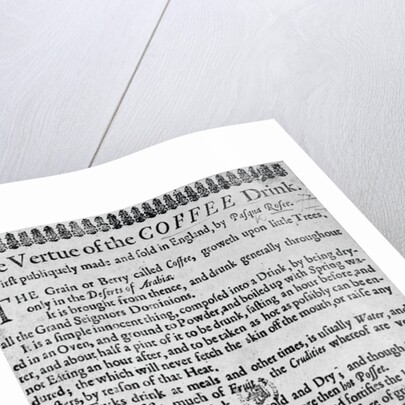 e Vertue of the COFFEE Drink.
First publiquely made and sold in England, by Pasqua Rosee.
THE Grain or Berry called Coffee, groweth upon little Trees,
only in the Deserts of Arabia.
It is brought from thence, and drunk generally throughout
all the Grand Seigniors Dominions.
It is a simple innocent thing, composed into a Drink, by being dry-
ed in an Oven, and ground to Powder, and boiled up with Spring wa-
ter, and about half a pint of it to be drunk, fasting an hour before, and
not Eating an hour after, and to be taken as hot as possibly can be en-
dured; the which will never fetch the skin off the mouth, or raise any
by reason of that Heat.
drink at meals and other times, is usually Water, and
much of Fruit, the Crudities whereof are
and Dry; and though
then hot Posset.